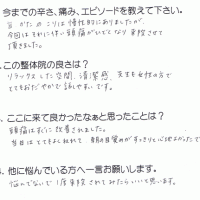 今までの辛さ、痛み、エピソードを教えて下さい。
首 かたのこりは慢性的にありましたが、
今回はそれに伴い頭痛がひどくなり来院させて
頂きました。
この整体院の良さは?
リラックスした空間、清潔感、先生も女性の方で
とてもおだやかで話しやすいです。
ここに来て良かったなぁと思ったことは?
頭痛はすぐに改善されました。
当日は とてもよくねれて 朝の目覚めがすっきりと心地よかったです
他に悩んでいる方へ一言お願いします。
悩んでないで1度来院されてみたらいいと思います。